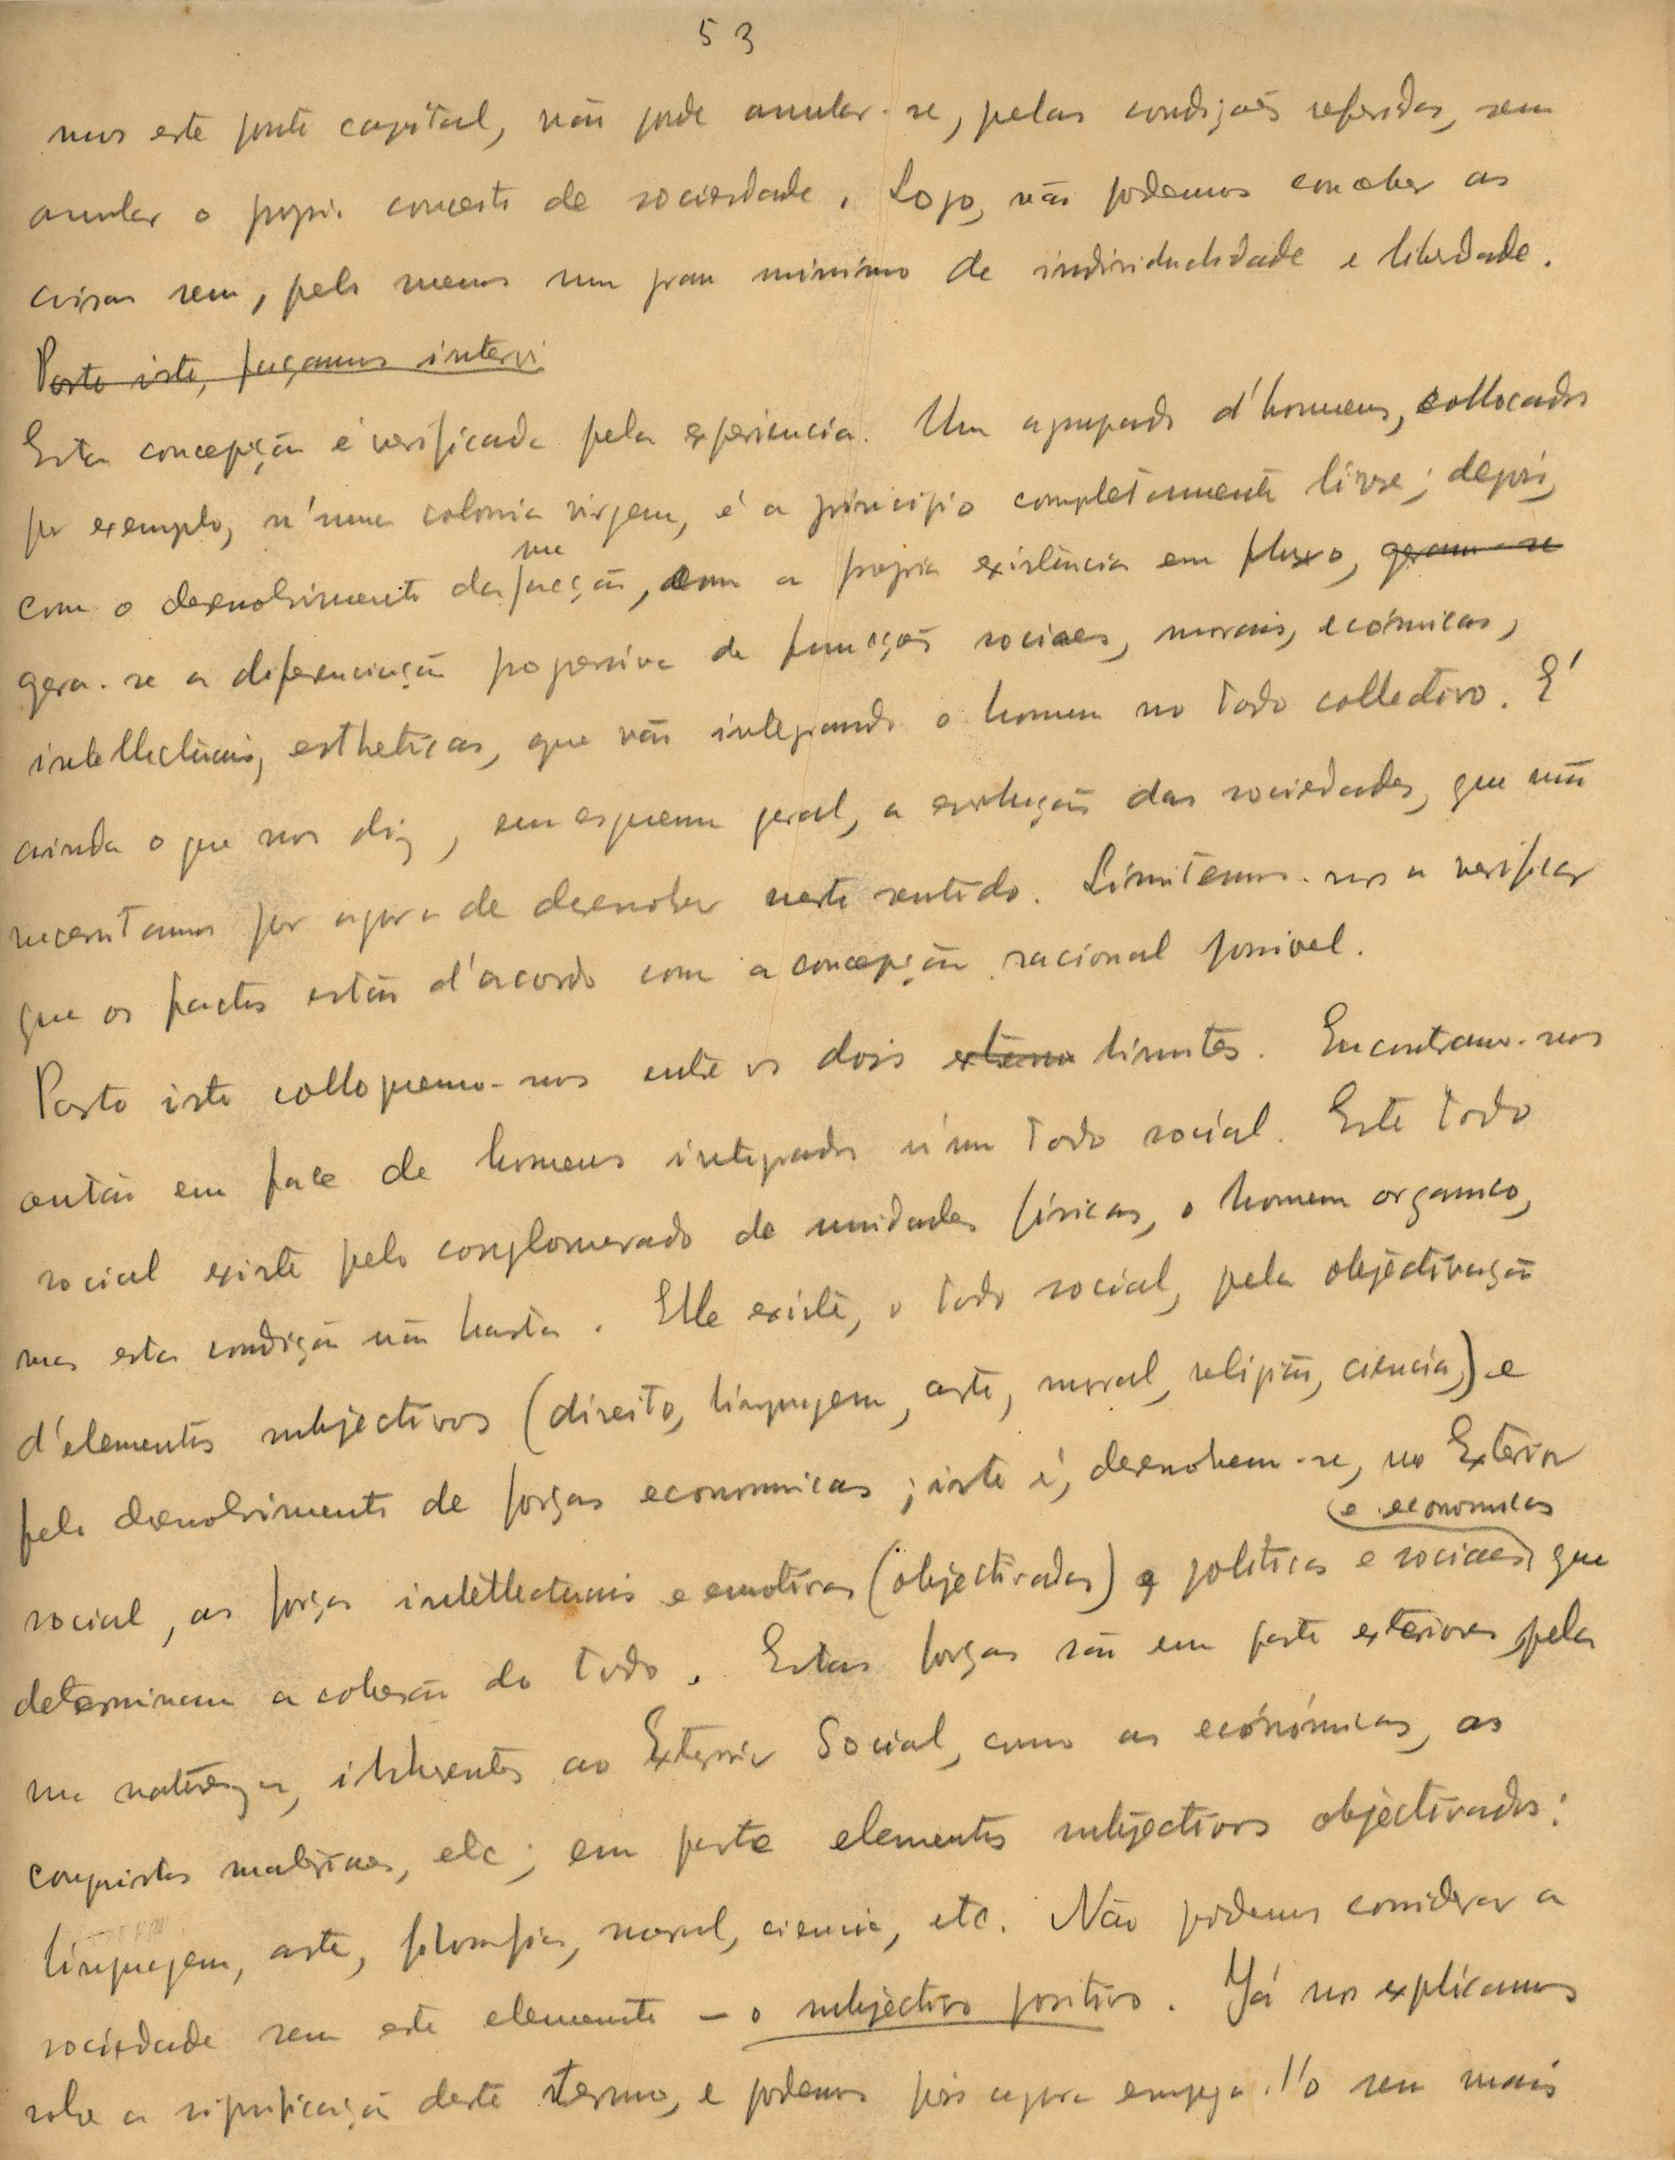 53
nos este ponto capital, não pode annular-se, pelas condições referidas, sem
annular o proprio conceito de sociedade. Logo, não podemos conceber as
coisas sem, pelo menos um grau minimo de individualidade e liberdade.
Posto isto, façamos intervi
Esta concepção é verificada pela experiencia. Um agrupado d'homens, collocados
por exemplo, n'uma colonia virgem, é a principio completamente livre; depois,
com o desenvolvimento da sua acção, com a propria existência em fluxo, geram-se
gera-se a diferenciação progressiva de funcções sociaes, morais, ecónmicas,
intellectuais, estheticas, que vão integrando o homem no todo collectivo. É
ainda o que nos diz, em esquema geral, a evolução das sociedades, que não
necessitamos por agora de desenvolver neste sentido. Limitamo-nos a verificar
que os factos estão d'acordo com a concepção racional possivel.
Posto isto colloquemo-nos entre os dois extremo limites. Encontramo-nos
então em face de homens integrados n'um todo social. Este todo
social existe pelo conglomerado de unidades físicas, o homem organico,
mas esta condição não basta. Elle existe, o todo social, pela objectivação
d'elementos subjectivos (direito, linguagem, arte, moral, religião, ciencia,) e
pelo desenvolvimento de forças economicas; isto é, desenvolvem-se, no Exterior
(e economicas
social, as forças intellectuais e emotivas (objectivadas) e politicas e sociaes, que
determinam a cohesão do todo. Estas forças são em parte exteriores, pela
sua natureza, inherentes ao Exterior Social, como as ecónómicas, as
conquistas materiaes, etc; em parte elementos subjectivos objectivados:
linguagem, arte, filosofia, moral, ciencia, etc. Não podemos considerar a
sociedade sem este elemento – o subjectivo positivo. Já nos explicamos
sobre a significação deste termo, e podemos pois agora empega-l'o sem mais